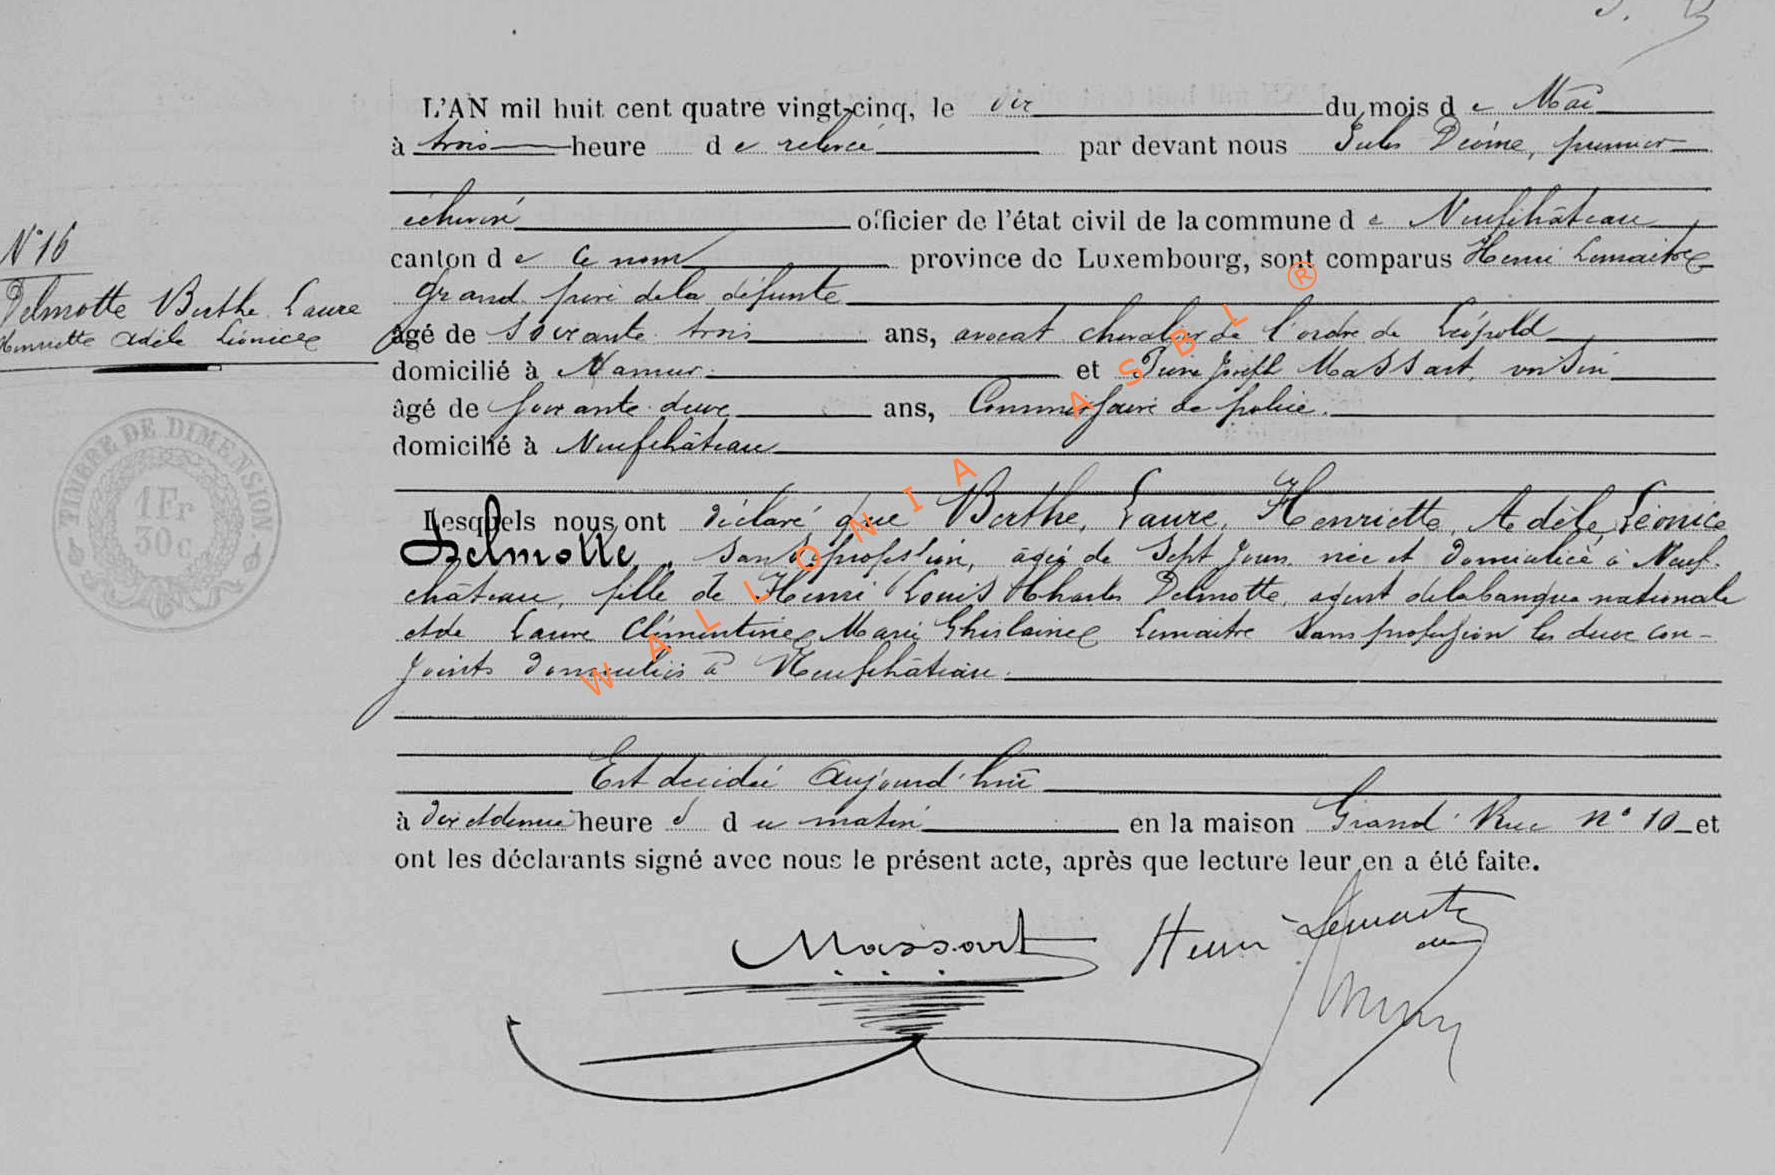 L'AN mil huit cent quatre vingt-cinq, le dix du mois de Mai
à trois heure de relevée par devant nous Jules premier
échevin officier de l'état civil de la commune de Neufchâteau
N° 16
canton de ce nom province de Luxembourg, sont comparus Henri Lemaitre
grand père de la défunte
Delmotte Berthe Laure
Henriette Adèle Léonice
âgé de soixante trois ans, avocat chevalier de l'ordre de Léopold
domicilié à Namur et Pierre Joseph Massart, voisin
âgé de ans, Commissaire de police.
domicilié à Neufchâteau
TIMBRE DE DIMENSION
1 Fr
30 c
Lesquels nous ont déclaré que Berthe, Laure, Henriette, Adèle, Léonice
Delmotte, sans profession, âgée de sept jours née et domiciliée à Neuf-
château, fille de Henri Louis Charles Delmotte, agent de la banque nationale
et de Laure Clémentine Marie Ghislaine Lemaitre sans profession les deux con-
joints domiciliés à Neufchâteau.
Est décédée aujourd'hui
à dix et demie heures du matin en la maison Grand'Rue n° 10 et
ont les déclarants signé avec nous le présent acte, après que lecture leur en a été faite.
Massart Henri Lemaitre
WALLONIA ASBL ®